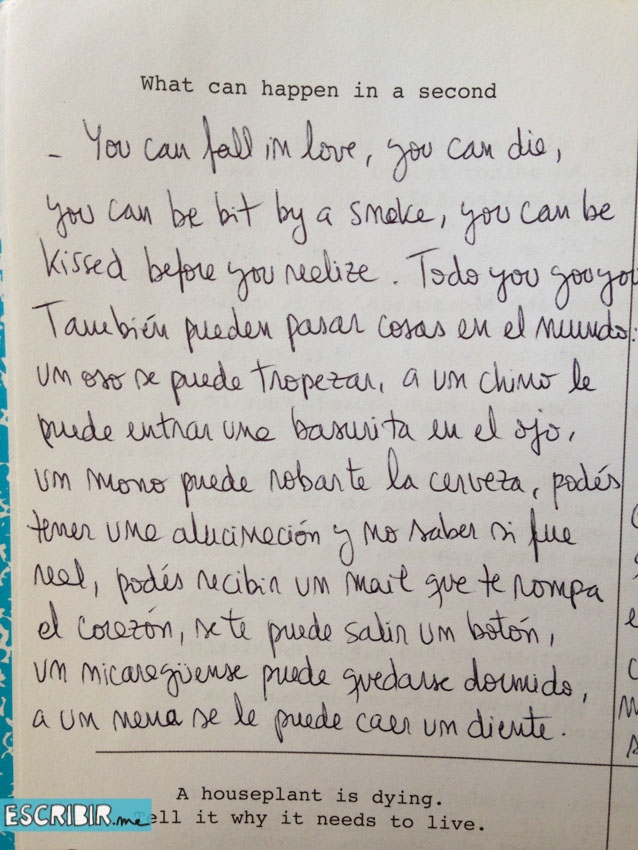 What can happen in a second
- You can fall in love, you can die,
you can be bit by a snake, you can be
kissed before you realize. Todo you you you
También pueden pasar cosas en el mundo:
un oso se puede tropezar, a un chino le
puede entrar una basurita en el ojo,
un mono puede robarte la cerveza, podés
tener una alucinación y no saber si fue
real, podés recibir un mail que te rompa
el corazón, se te puede salir un botón,
un nicaragüense puede quedarse dormido,
a un nena se le puede caer un diente.
A houseplant is dying.
Tell it why it needs to live.
ESCRIBIR.me